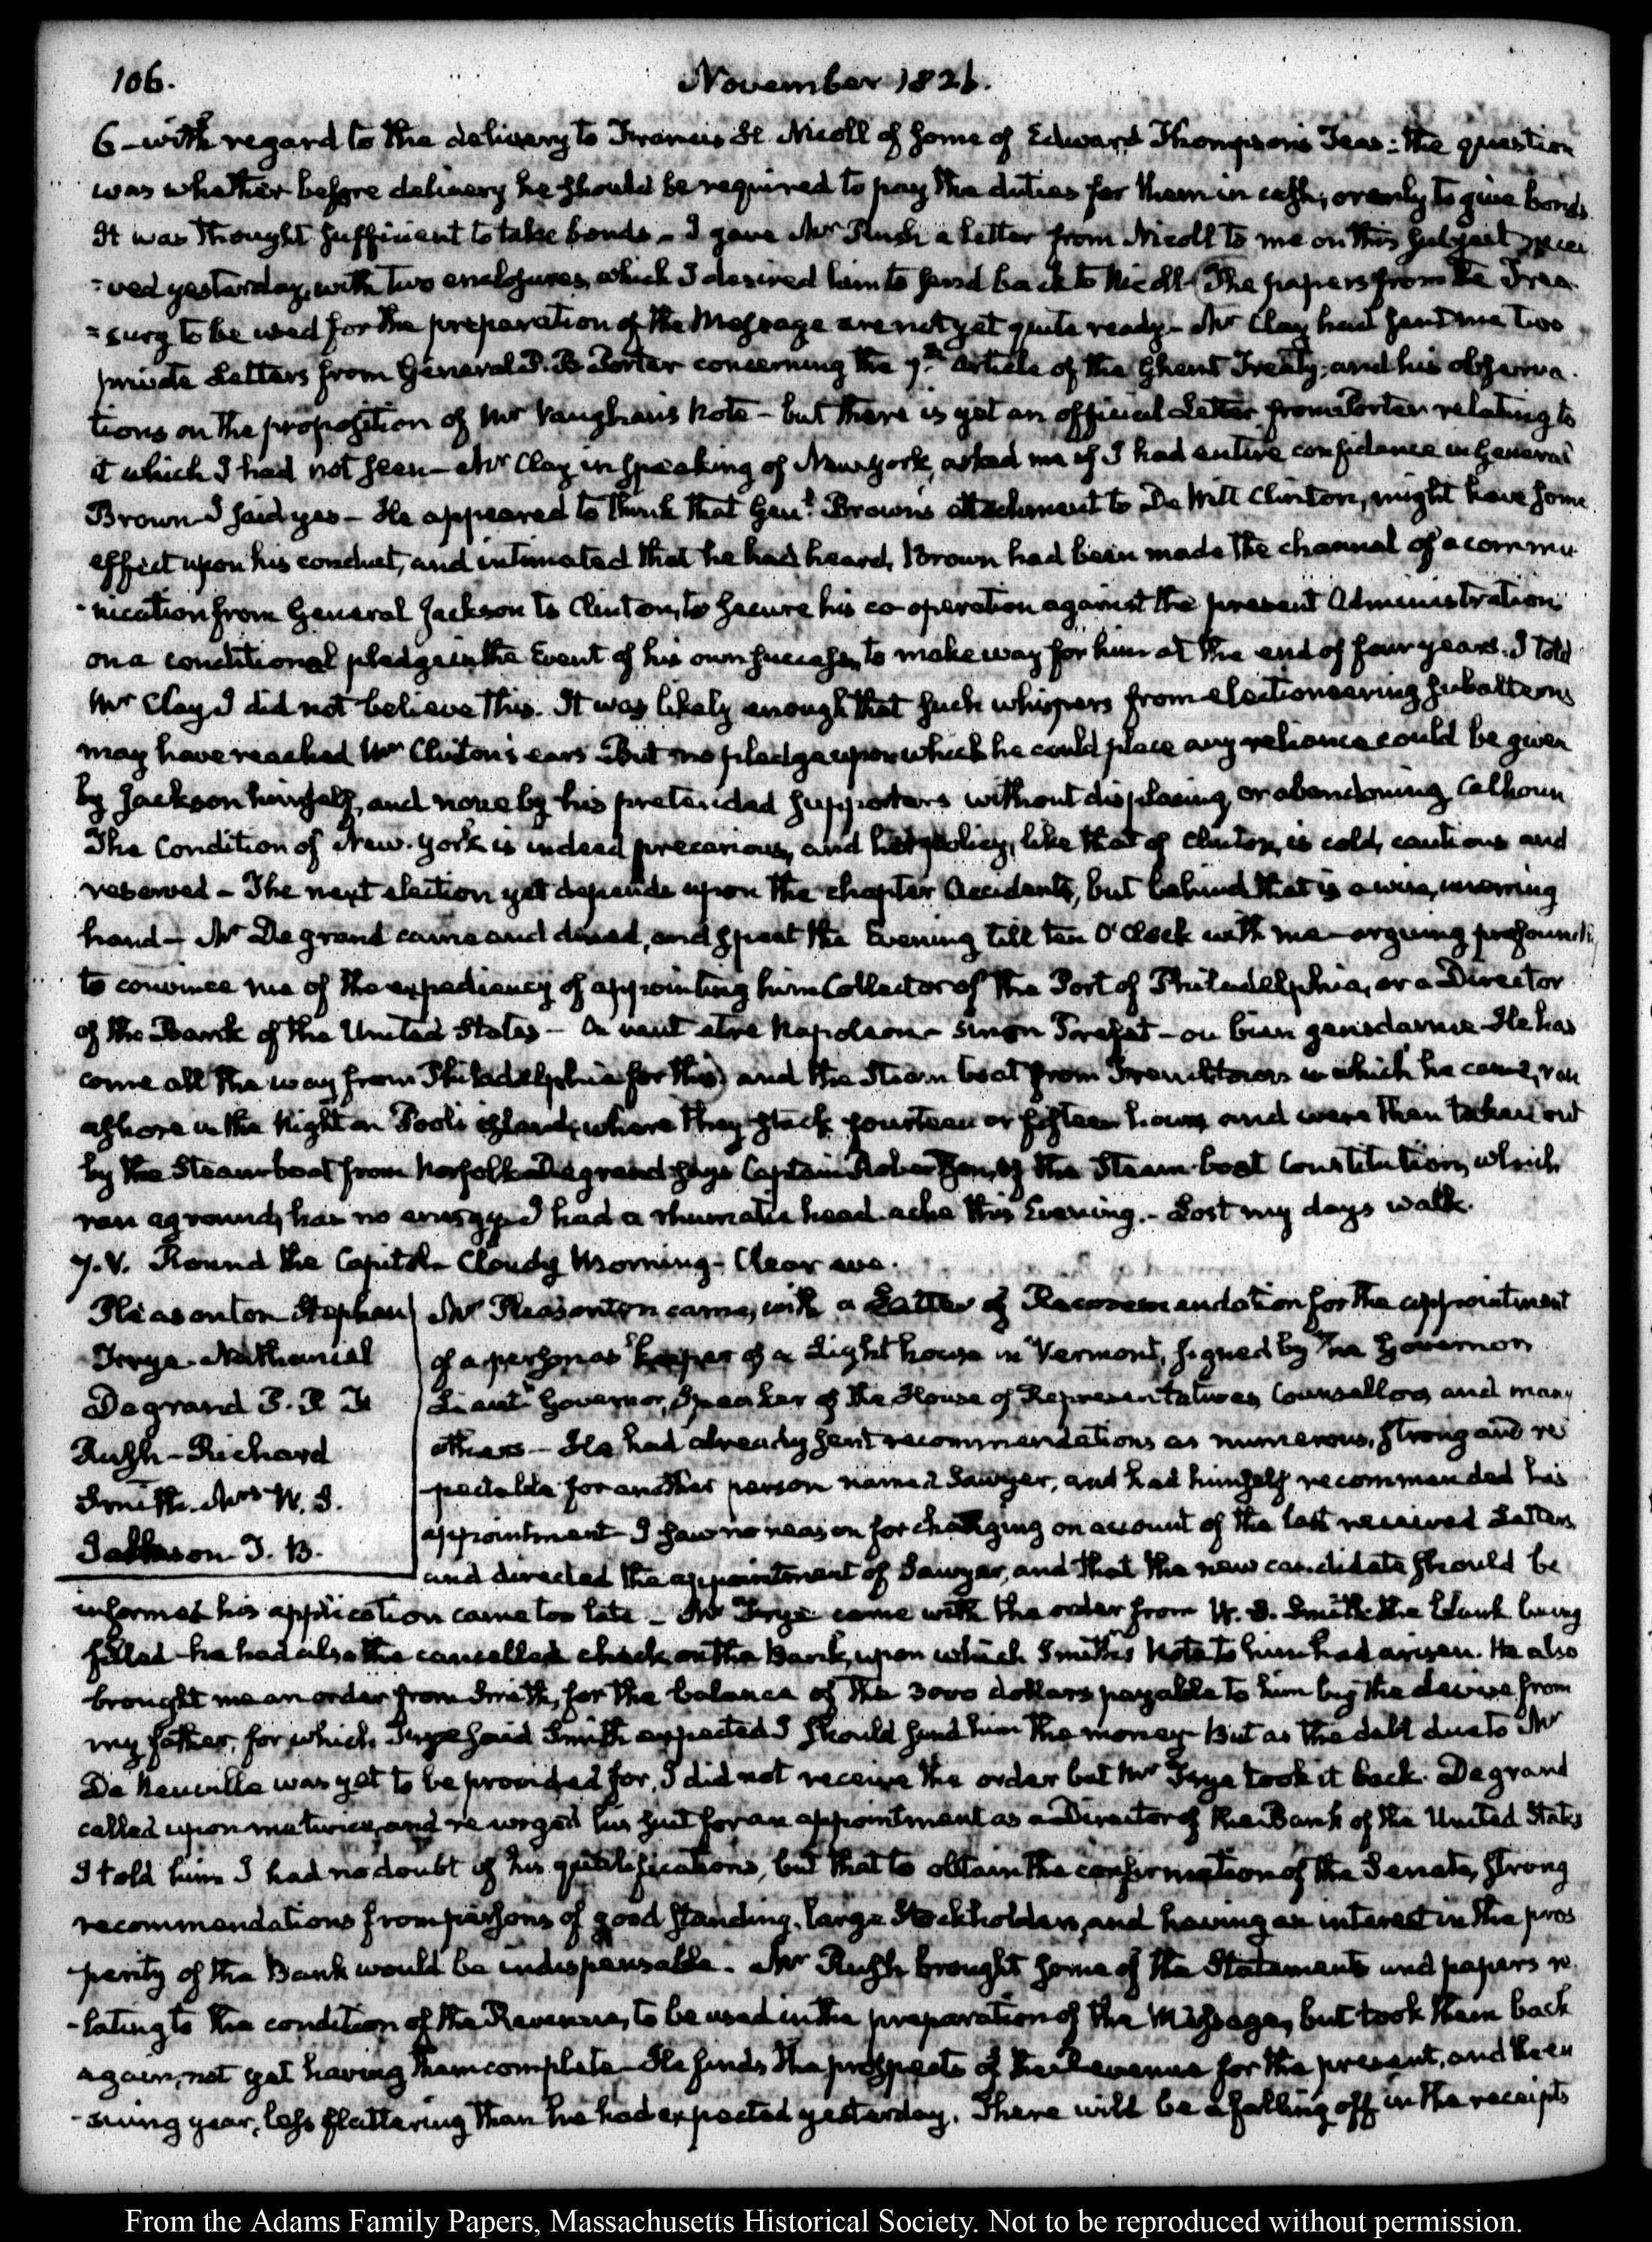 106.
November 1826.
6 - with regard to the delivery to Francis H. Nicoll of some of Edward Thompson's Teas: the question
was whether before delivery he should be required to pay the duties for them in cash, or only to give bonds.
It was thought sufficient to take bonds - I gave Mr Rush a Letter from Nicoll to me on this subject recei
=ved yesterday, with two enclosures, which I desired him to send back to Nicoll - The papers from the Trea
=sury to be used for the preparation of the Message are not yet quite ready - Mr Clay had sent me two
private Letters from General P. B. Porter concerning the 7th Article of the Ghent Treaty; and his observa
tions on the proposition of Mr Vaughan's Note - but there is yet an official Letter from Porter relating to
it which I had not seen - Mr Clay in speaking of New York, asked me if I had entire confidence in General
Brown - I said yes - He appeared to think that Genl. Brown's attachment to De Witt Clinton, might have some
effect upon his conduct, and intimated that he had heard, Brown had been made the channel of a commu
-nication from General Jackson to Clinton, to secure his co-operation against the present Administration
on a conditional pledge in the Event of his own success, to make way for him at the end of four years. I told
Mr Clay I did not believe this. It was likely enough that such whispers from electioneering subalterns
may have reached Mr Clinton's ears - But no pledge upon which he could place any reliance could be given
by Jackson himself, and none by his pretended supporters without displacing, or abandoning Calhoun
The Condition of New-York is indeed precarious, and her policy, like that of Clinton, is cold, cautious and
reserved - The next election yet depends upon the chapter Accidents, but behind that is a wise, unerring
hand - Mr Degrand came and dined, and spent the Evening till ten O'Clock with me - arguing profoundly
to convince me of the expediency of appointing him Collector of the Port of Philadelphia, or a Director
of the Bank of the United States - On veut etre Napoleon - sinon Prefet - ou bien gensdarme - He has
come all the way from Philadelphia for this) and the Steam boat from Frenchtown in which he came, ran
ashore in the Night on Pools island, where they stuck fourteen or fifteen hours and were then taken out
by the Steamboat from Norfolk - Degrand says Captain Robertson, of the Steam-boat Constitution, which
ran aground, has no energy - I had a rheumatic head-ache this Evening. - Lost my days walk.
7. V. Round the Capitol - Cloudy Morning - Clear eve.
Pleasonton Stephen
Frye - Nathaniel
Degrand P. P. F
Rush - Richard
Smith. Mrs W. S.
J. B.
Mr Pleasonton came, with a Letter of Recommendation for the appointment
of a person as keeper of a Light house in Vermont, signed by the Governor
Lieutt. Governor, Speaker of the House of Representatives, Counsellors and many
others - He had already sent recommendations as numerous, strong and re
spectable for another person named Sawyer, and had himself recommended his
appointment - I saw no reason for changing on account of the last received Letter,
and directed the appointment of Sawyer, and that the new candidate should be
informed his application came too late - Mr Frye came with the order from W. S. Smith the blank being
filled - he had also the cancelled check on the Bank, upon which Smith's Note to him had arisen. He also
brought me an order from Smith, for the balance of the 3000 dollars payable to him by the devise from
my father, for which Frye said Smith expected I should send him the money - But as the debt due to Mr
De Neuville was yet to be provided for, I did not receive the order but Mr Frye took it back. Degrand
called upon me twice, and re urged his suit for an appointment as a Director of the Bank of the United States
I told him I had no doubt of his qualifications, but that to obtain the confirmation of the Senate, strong
recommendations from persons of good standing, large Stockholders, and having an interest in the pros
perity of the Bank would be indispensable. Mr Rush brought some of the Statements and papers re
-lating to the condition of the Revenue, to be used in the preparation of the Message, but took them back
again, not yet having them complete - He finds the prospects of the Revenue for the present, and the en
-suing year, less flattering than he had expected yesterday. There will be a falling off in the receipts
From the Adams Family Papers, Massachusetts Historical Society. Not to be reproduced without permission.